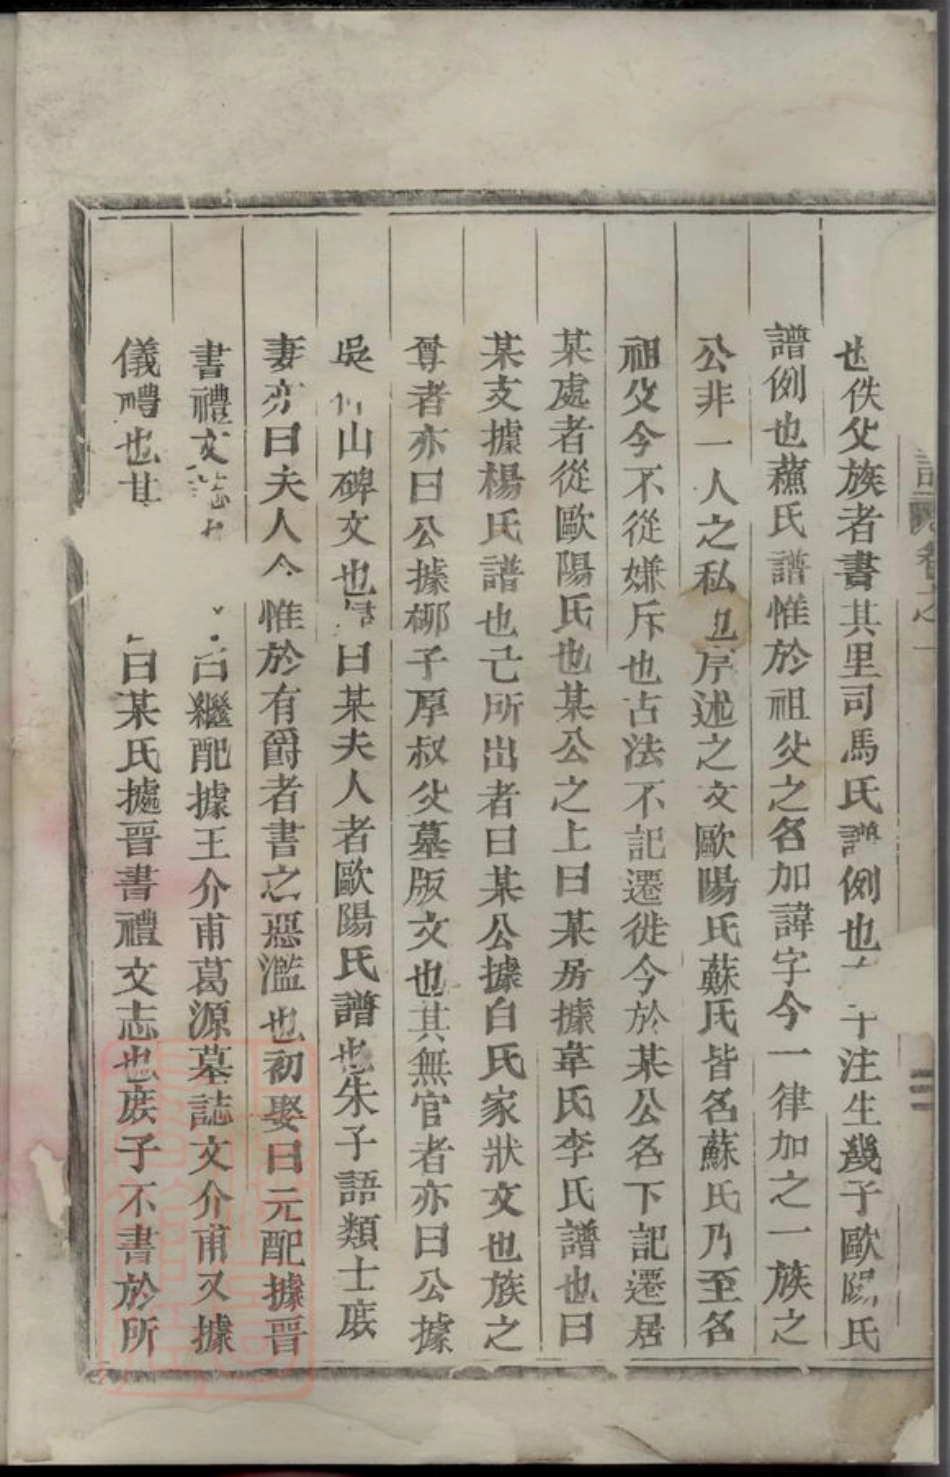 也佚父族者書其里司馬氏譜例也 注生幾子歐陽氏
譜例也蘓氏譜惟於祖父之名加諱字今一律加之一族之
公非一人之私也序述之文歐陽氏蘇氏皆名蘇氏乃至名
祖父今不從嫌斥也古法不記遷徙今於某公名下記遷居
某處者從歐陽氏也某公之上曰某房據韋氏李氏譜也曰
某支據楊氏譜也己所出者曰某公據白氏家狀文也族之
尊者亦曰公據柳子厚叔父墓版文也其無官者亦曰公據
吳 山碑文也 曰某夫人者歐陽氏譜也朱子語類士庻
妻亦曰夫人今惟於有爵者書之惡濫也初娶曰元配據晋
書禮文志 曰繼配據王介甫葛源墓誌文介甫又據
儀禮也 曰某氏據晋書禮文志也庻子不書於所
譜 卷之一
二